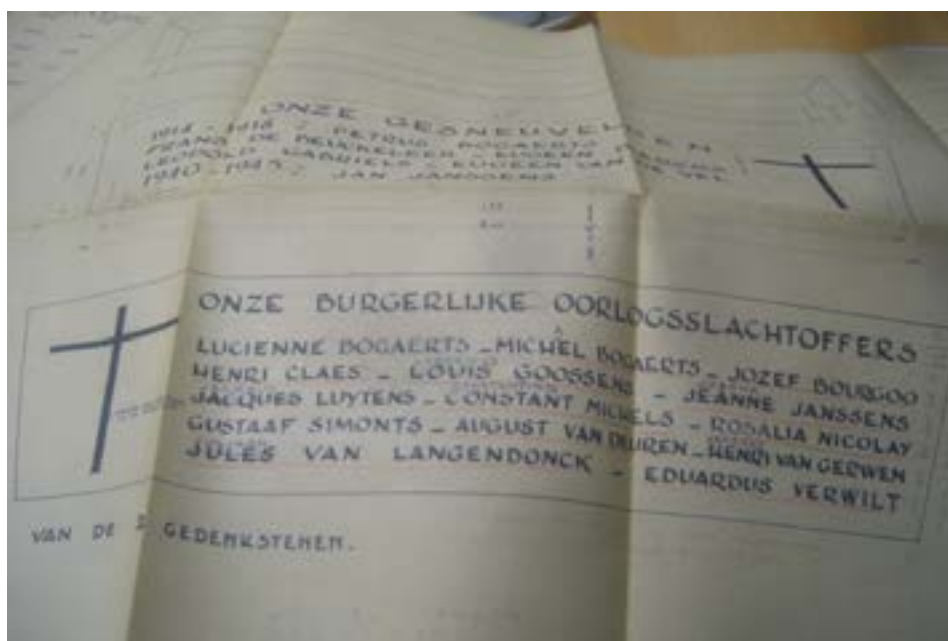 ONZE GESNEUVELDEN
1914-1918 : PETRUS BOGAERTS
FRANS DE BEUCKELEER - EUGEEN
LEOPOLD GABRIELS - EUGEEN VAN
1940-1945 : JAN JANSSENS
ONZE BURGERLIJKE OORLOGSSLACHTOFFERS
LUCIENNE BOGAERTS - MICHEL BOGAERTS - JOZEF BOURGOO
HENRI CLAES - LOUIS GOOSSENS - JEANNE JANSSENS
JACQUES LUYTENS - CONSTANT MICHIELS - ROSALIA NICOLAY
GUSTAAF SIMONTS - AUGUST VAN DEUREN - HENRI VAN GERWEN
JULES VAN LANGENDONCK - EDUARDUS VERWILT
VAN DE 2 GEDENKSTENEN.